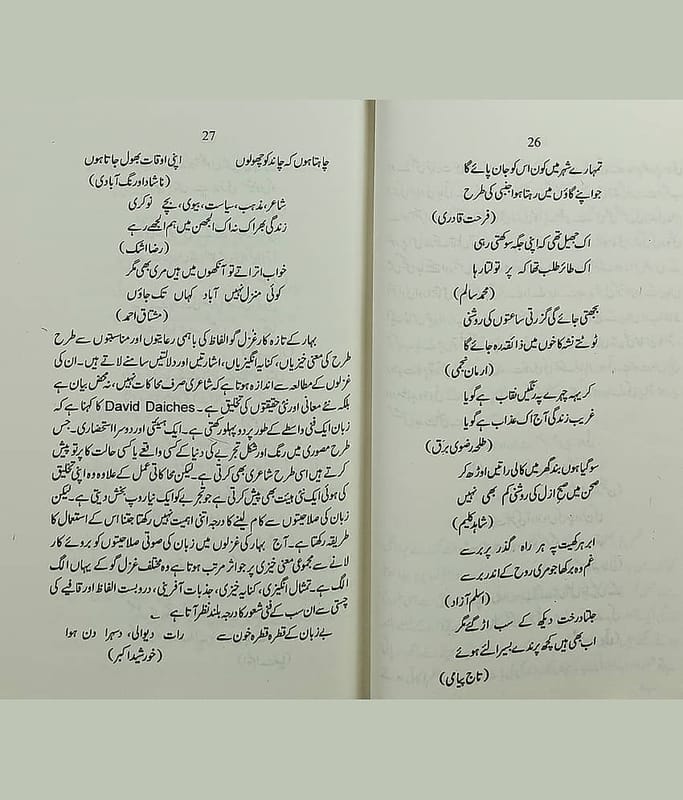 26
تمہارے شہر میں کون اس کو جان پائے گا
جو اپنے گاؤں میں رہتا ہو اجنبی کی طرح
(فرحت قادری)
اک جھیل تھی کہ اپنی جگہ سوکھتی رہی
اک طائر طلب تھا کہ پر تولتا رہا
(محمد سالم)
بجھتی جائے گی گزرتی ساعتوں کی روشنی
ٹوٹتے نشہ کا خوں میں ذائقہ رہ جائے گا
(ارمان نجمی)
کریہہ چہرے پہ رنگیں نقاب ہے گویا
غریب زندگی آج اک عذاب ہے گویا
(طلحہ رضوی برق)
سو گیا ہوں بند گھر میں کالی راتیں اوڑھ کر
صحن میں صبح ازل کی روشنی کم بھی نہیں
(شاہد کلیم)
ابر ہر کھیت پہ ہر راہ گذر پر برسے
غم وہ برکھا جو مری روح کے اندر برسے
(اسلم آزاد)
جلتا درخت دیکھ کے سب اڑ گئے مگر
اب بھی ہیں کچھ پرندے بسیرا لئے ہوئے
(تاج پیامی)
27
چاہتا ہوں کہ چاند کو چھولوں اپنی اوقات بھول جاتا ہوں
(ناشاد اورنگ آبادی)
شاعر، مذہب، سیاست، بیوی، بچے نوکری
زندگی بھر اک نہ اک الجھن میں ہم الجھے رہے
(رضا اشک)
خواب اتراتے تو آنکھوں میں ہیں مری بھی مگر
کوئی منزل نہیں آباد کہاں تک جاؤں
(مشتاق احمد)
بہار کے تازہ کار غزل گو الفاظ کی باہمی رعایتوں اور مناسبتوں سے طرح
طرح کی معنی خیزیاں، کنایہ انگیزیاں، اشارتیں اور دلالتیں سامنے لاتے ہیں۔ ان کی
غزلوں کے مطالعہ سے اندازہ ہوتا ہے کہ شاعری صرف محاکات نہیں، نہ محض بیان ہے
بلکہ نئے معانی اور نئی حقیقتوں کی تخلیق ہے۔ David Daiches کا کہنا ہے کہ
زبان ایک فنی واسطے کے طور پر دو پہلو رکھتی ہے۔ ایک ہیئتی اور دوسرا استحضاری۔ جس
طرح مصوری میں رنگ اور شکل تجربے کی دنیا کے کسی واقعے یا کسی حالت کا پرتو پیش
کرتے ہیں اسی طرح شاعری بھی کرتی ہے۔ لیکن محاکاتی عمل کے علاوہ وہ اپنی تخلیق
کی ہوئی ایک نئی ہیئت بھی پیش کرتی ہے جو تجربے کو ایک نیا روپ بخش دیتی ہے۔ لیکن
زبان کی صلاحیتوں سے کام لینے کا درجہ اتنی اہمیت نہیں رکھتا جتنا اس کے استعمال کا
طریقہ رکھتا ہے۔ آج بہار کی غزلوں میں زبان کی صوتی صلاحیتوں کو بروئے کار
لانے سے مجموعی معنی خیزی پر جو اثر مرتب ہوتا ہے وہ مختلف غزل گو کے یہاں الگ
الگ ہے۔ تمثال انگیزی، کنایہ خیزی، جذبات آفرینی، دروبست الفاظ اور قافیے کی
چستی سے ان سب کے فنی شعور کا درجہ بلند نظر آتا ہے
بے زبان کے قطرہ قطرہ خون سے رات دیوالی، دسہرا دن ہوا
(خورشید اکبر)